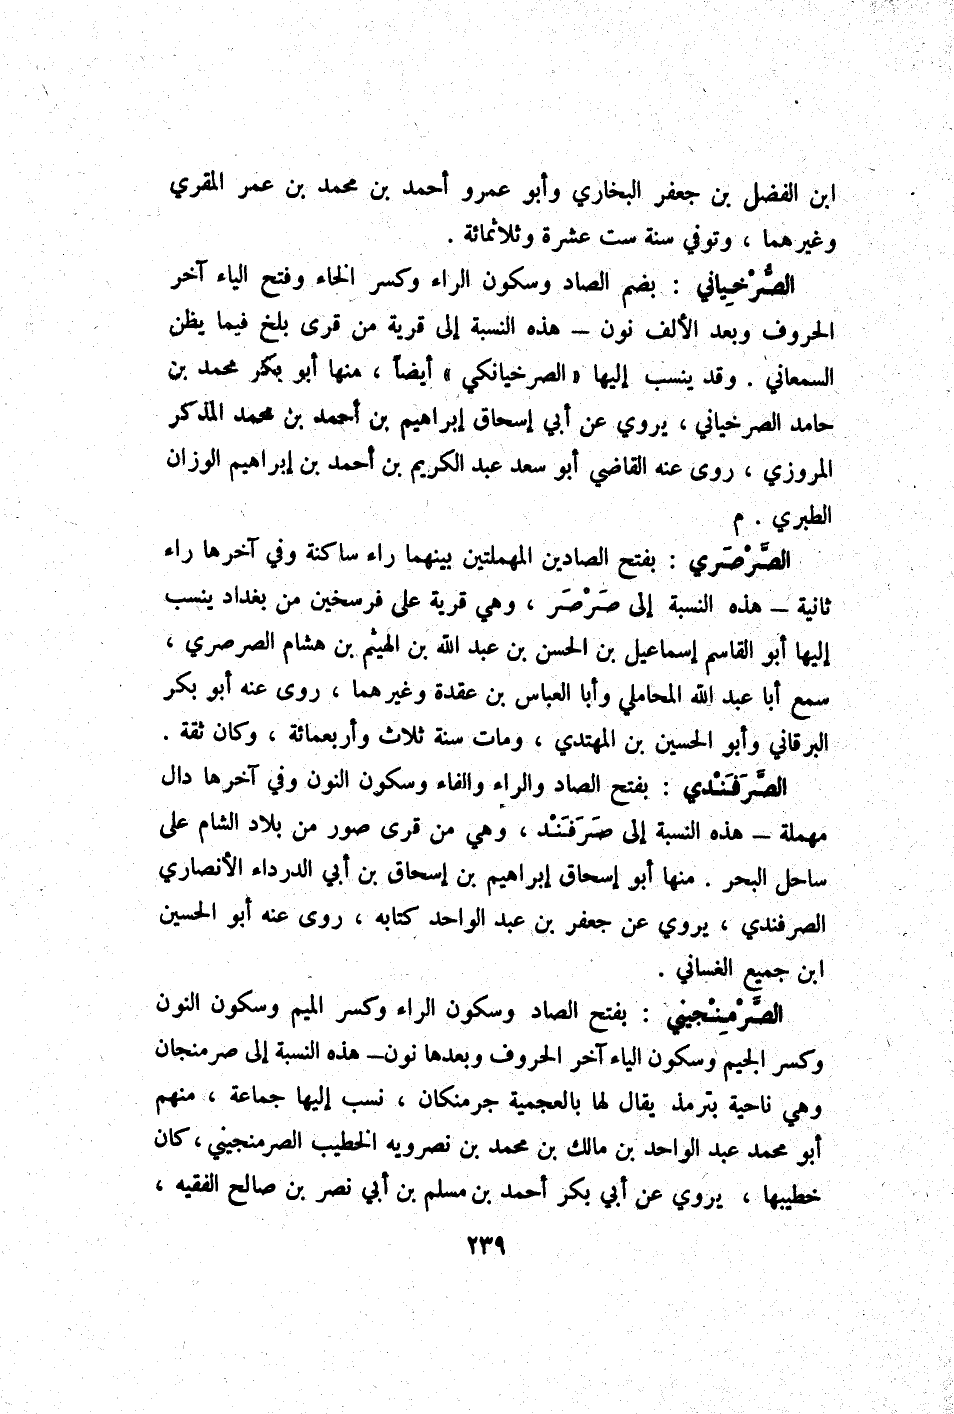 ابن الفضل بن جعفر البخاري وأبو عمرو أحمد بن محمد بن عمر المقري
وغيرهما ، وتوفي سنة ست عشرة وثلاثمائة .
الصُّرْخِياني : بضم الصاد وسكون الراء وكسر الخاء وفتح الياء آخر
الحروف وبعد الألف نون – هذه النسبة إلى قرية من قرى بلخ فيما يظن
السمعاني . وقد ينسب إليها « الصرخيانكي » أيضاً ، منها أبو بكر محمد بن
حامد الصرخياني ، يروي عن أبي إسحاق إبراهيم بن أحمد بن محمد المذكر
المروزي ، روى عنه القاضي أبو سعد عبد الكريم بن أحمد بن إبراهيم الوزان
الطبري . م
الصَّرْصَري : بفتح الصادين المهملتين بينهما راء ساكنة وفي آخرها راء
ثانية – هذه النسبة إلى صَرْصَر ، وهي قرية على فرسخين من بغداد ينسب
إليها أبو القاسم إسماعيل بن الحسن بن عبد الله بن الهيثم بن هشام الصرصري ،
سمع أبا عبد الله المحاملي وأبا العباس بن عقدة وغيرهما ، روى عنه أبو بكر
البرقاني وأبو الحسين بن المهتدي ، ومات سنة ثلاث وأربعمائة ، وكان ثقة .
الصَّرَفَنْدي : بفتح الصاد والراء والفاء وسكون النون وفي آخرها دال
مهملة – هذه النسبة إلى صَرَفَنْد ، وهي من قرى صور من بلاد الشام على
ساحل البحر . منها أبو إسحاق إبراهيم بن إسحاق بن أبي الدرداء الأنصاري
الصرفندي ، يروي عن جعفر بن عبد الواحد كتابه ، روى عنه أبو الحسين
ابن جميع الغساني .
الصَّرْمِنْجيني : بفتح الصاد وسكون الراء وكسر الميم وسكون النون
وكسر الجيم وسكون الياء آخر الحروف وبعدها نون– هذه النسبة إلى صرمنجان
وهي ناحية بترمذ يقال لها بالعجمية جرمنكان ، نسب إليها جماعة ، منهم
أبو محمد عبد الواحد بن مالك بن محمد بن نصرويه الخطيب الصرمنجيني ، كان
خطيبها ، يروي عن أبي بكر أحمد بن مسلم بن أبي نصر بن صالح الفقيه ،
٢٣٩